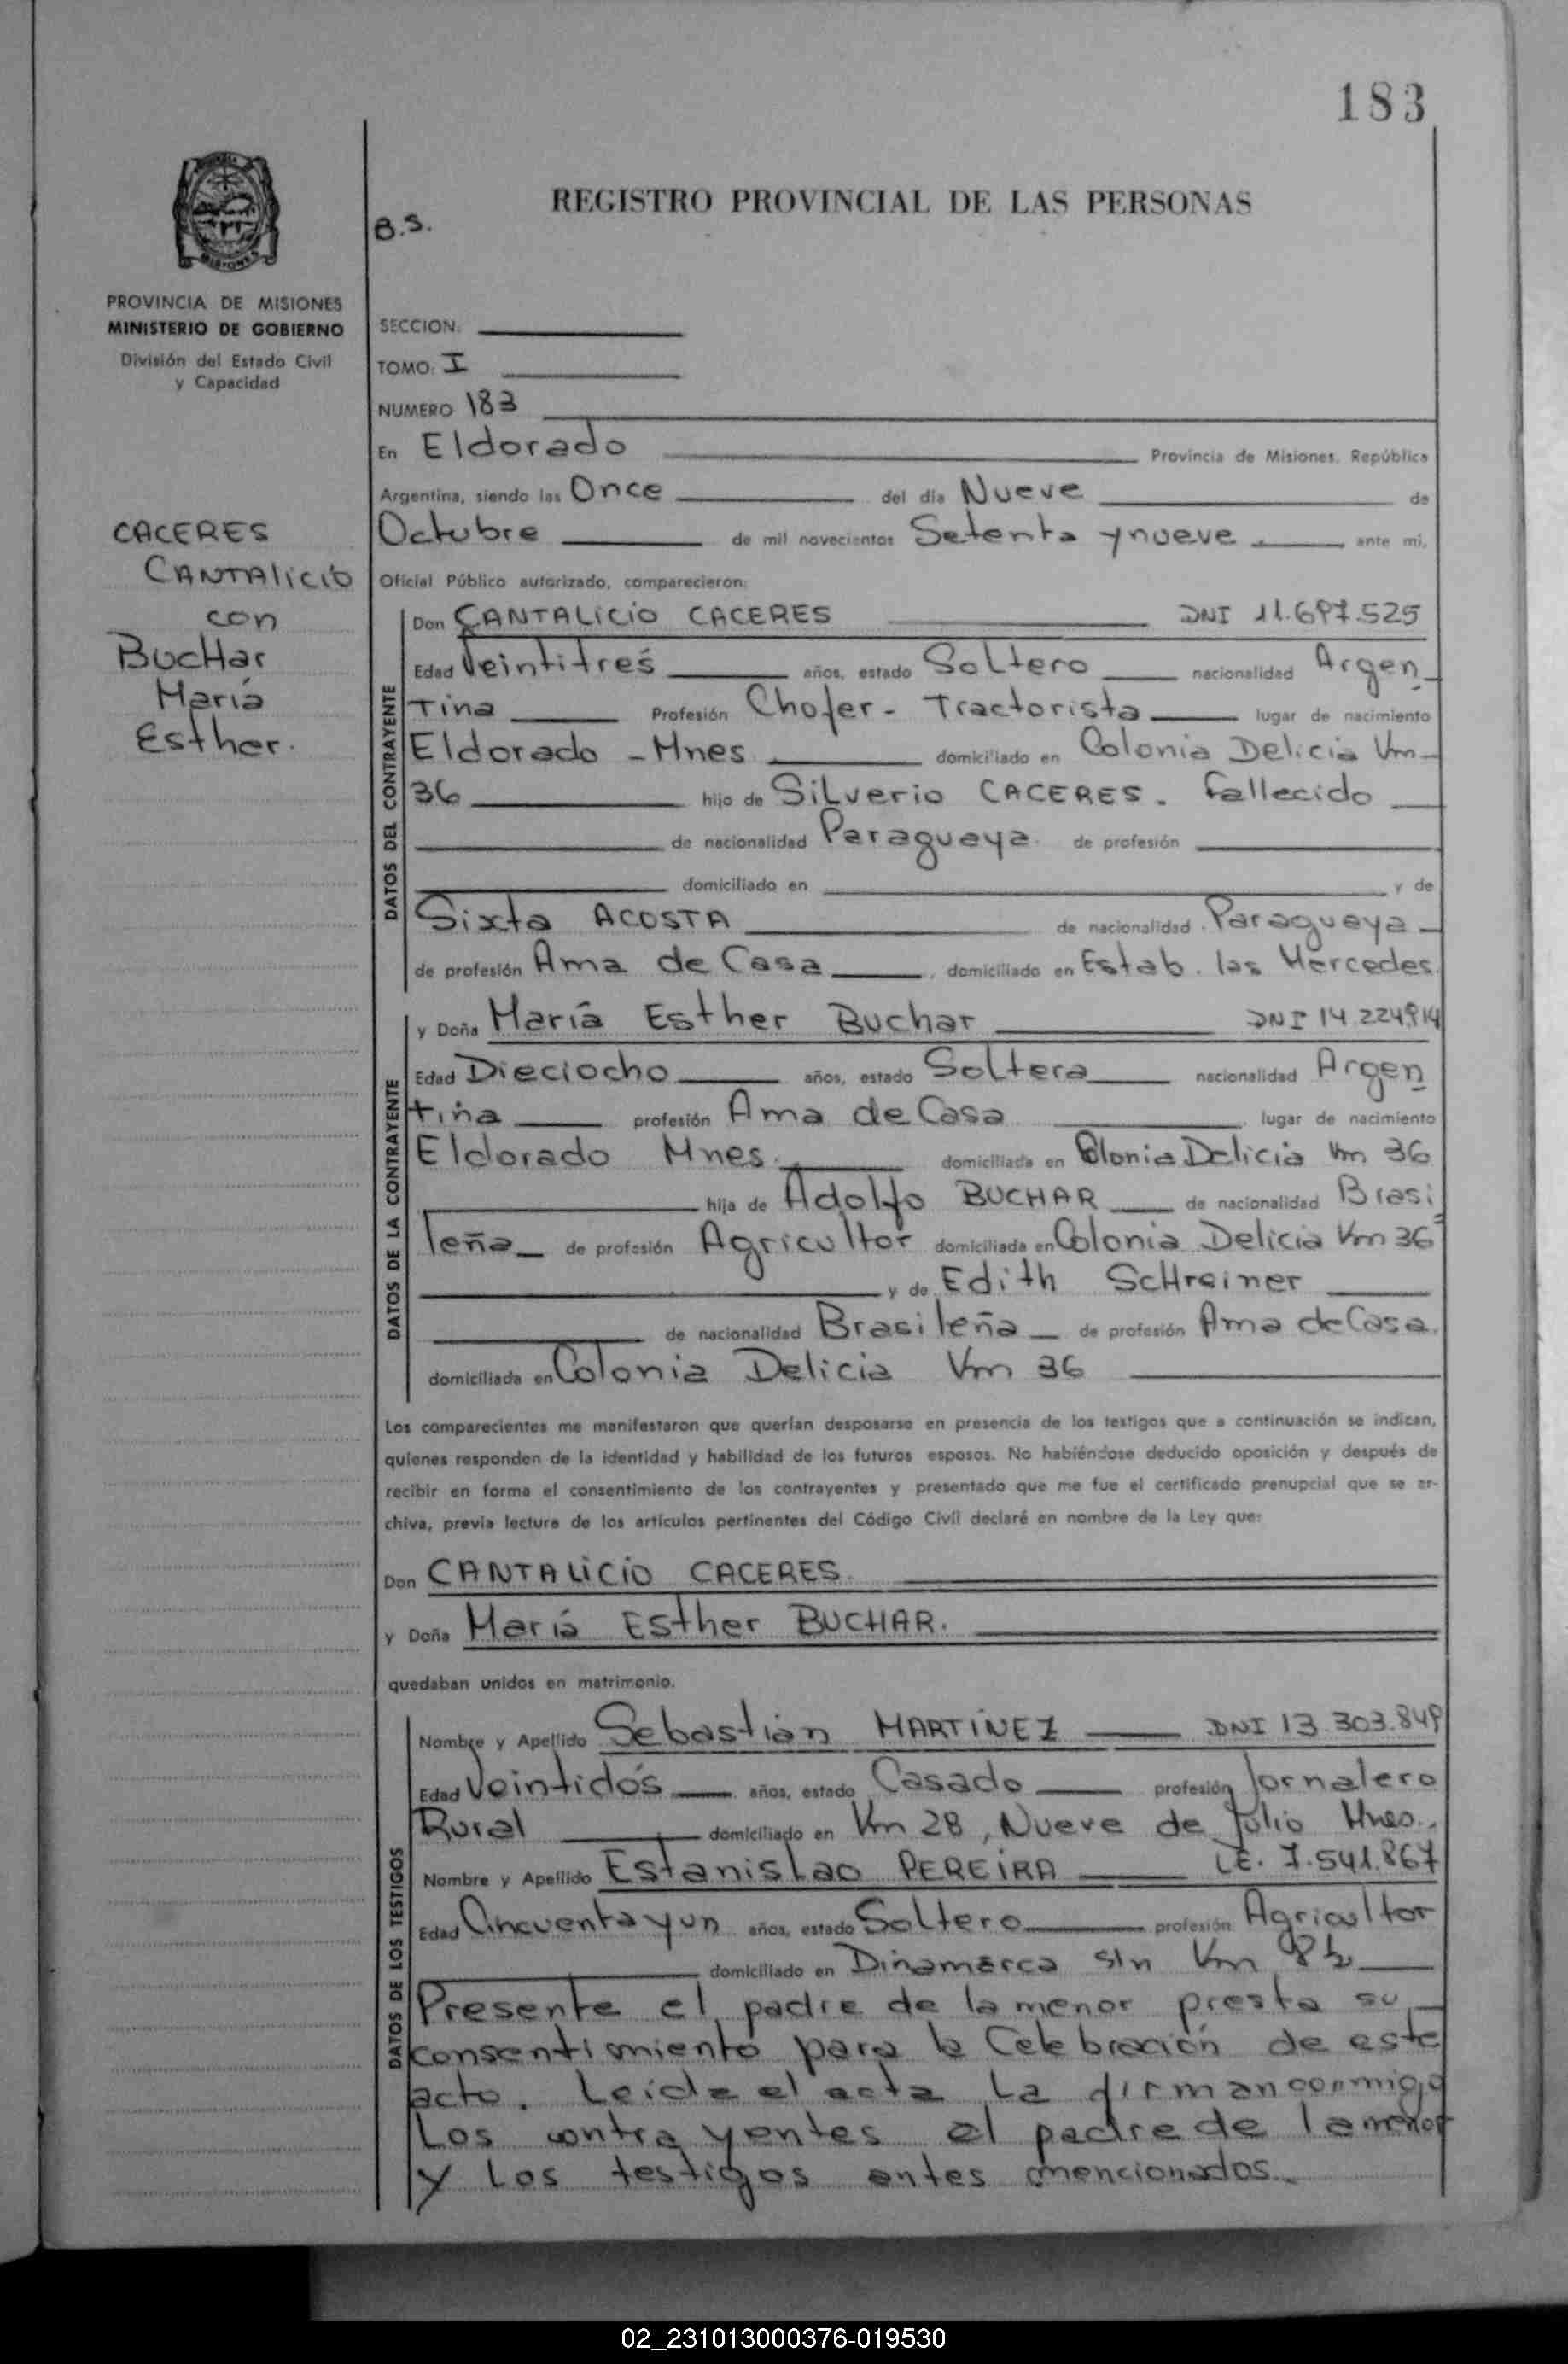 183
REGISTRO PROVINCIAL DE LAS PERSONAS
B.S.
PROVINCIA DE MISIONES
MINISTERIO DE GOBIERNO
División del Estado Civil
y Capacidad
SECCION:
TOMO: I
NUMERO 183
En Eldorado Provincia de Misiones, República
Argentina, siendo las Once del día Nueve de
Octubre de mil novecientos Setenta y nueve ante mi,
Oficial Público autorizado, comparecieron:
CACERES
CANTALICIO
con
BucHar
María
Esther.
DATOS DEL CONTRAYENTE
Don CANTALICIO CACERES DNI 11.697.525
Edad Veintitrés años, estado Soltero nacionalidad Argen
Tina Profesión Chofer - Tractorista lugar de nacimiento
Eldorado - Mnes domiciliado en Colonia Delicia Km
36 hijo de Silverio CACERES. Fallecido
de nacionalidad Paraguaya. de profesión
domiciliado en y de
Sixta ACOSTA de nacionalidad Paraguaya
de profesión Ama de Casa, domiciliado en Estab. las Mercedes.
DATOS DE LA CONTRAYENTE
y Doña María Esther Buchar DNI 14.224.914
Edad Dieciocho años, estado Soltera nacionalidad Argen
tina profesión Ama de Casa lugar de nacimiento
Eldorado Mnes. domiciliada en Colonia Delicia Km 36
hija de Adolfo BUCHAR de nacionalidad Brasi
leña de profesión Agricultor domiciliada en Colonia Delicia Km 36
y de Edith ScHreiner
de nacionalidad Brasileña de profesión Ama de Casa.
domiciliada en Colonia Delicia Km 36
Los comparecientes me manifestaron que querían desposarse en presencia de los testigos que a continuación se indican,
quienes responden de la identidad y habilidad de los futuros esposos. No habiéndose deducido oposición y después de
recibir en forma el consentimiento de los contrayentes y presentado que me fue el certificado prenupcial que se ar-
chiva, previa lectura de los artículos pertinentes del Código Civil declaré en nombre de la Ley que:
Don CANTALICIO CACERES.
y Doña María Esther BUCHAR.
quedaban unidos en matrimonio.
DATOS DE LOS TESTIGOS
Nombre y Apellido Sebastián MARTINEZ DNI 13.303.849
Edad Veintidós años, estado Casado profesión Jornalero
Rural domiciliado en Km 28, Nueve de Julio Mnes.
Nombre y Apellido Estanislao PEREIRA LE. 7.541.867
Edad Cincuenta y un años, estado Soltero profesión Agricultor
domiciliado en Dinamarca s/n Km
Presente el padre de la menor presta su
consentimiento para la Celebración de este
acto. Leída el acta la firman conmigo
Los contrayentes el padre de la menor
y Los testigos antes mencionados.
02_231013000376-019530